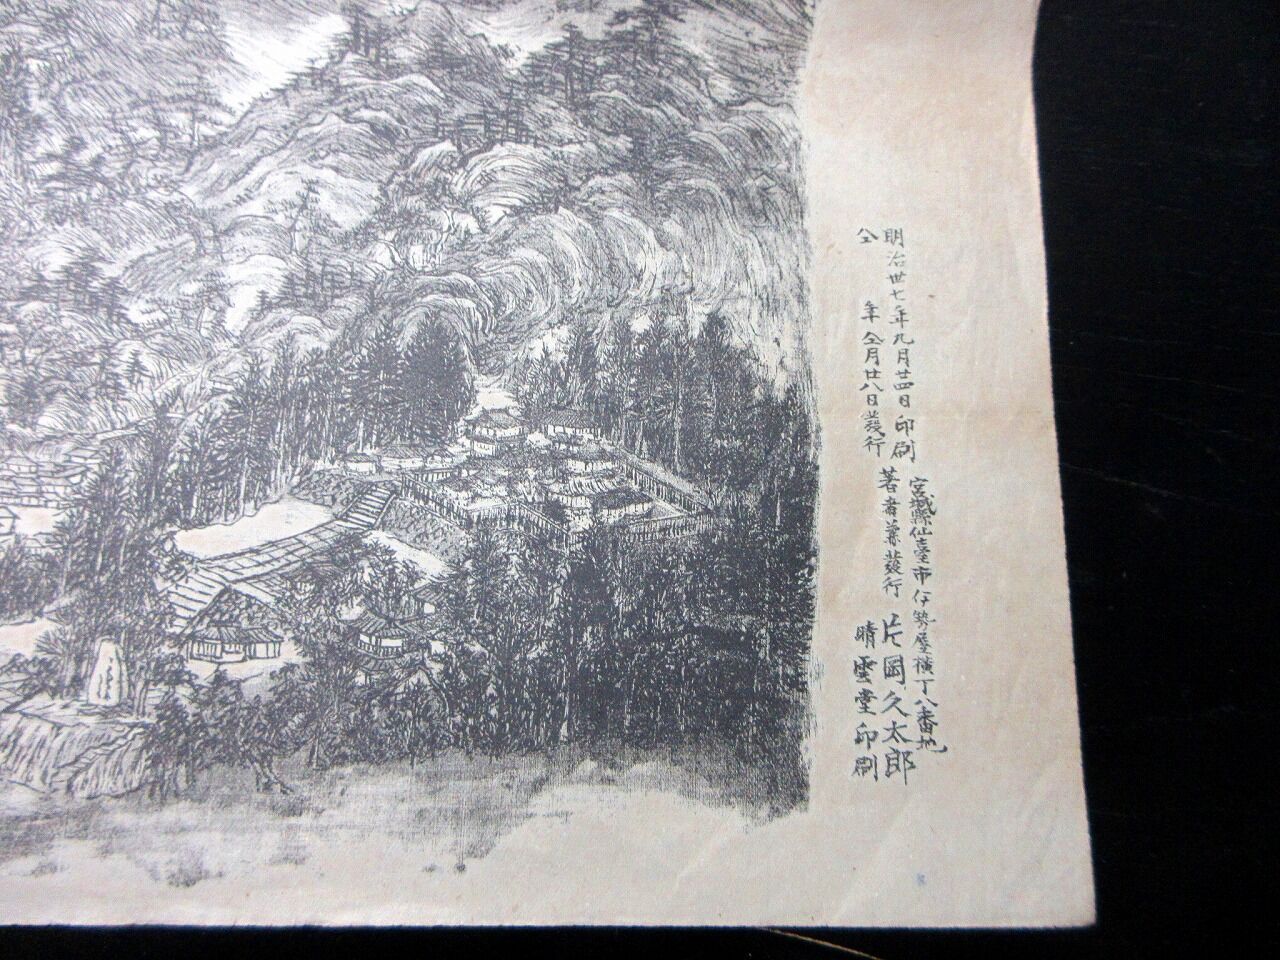 明治丗七年九月廿四日印刷
仝 年仝月廿八日発行
宮城縣仙臺市伊勢屋横丁八番地
著者兼発行 片岡久太郎
晴雲堂印刷